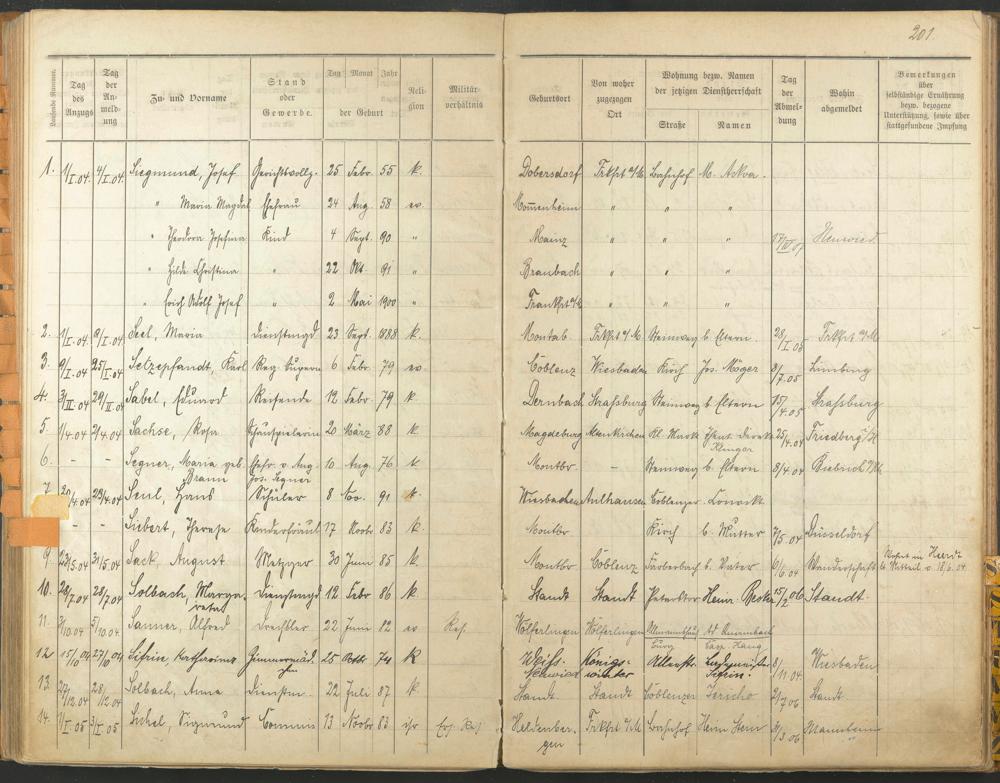 201.
Laufende Nummer. Tag des Anzugs Tag der Anmeldung Zu- und Vorname Stand oder Gewerbe. Tag Monat Jahr der Geburt Religion Militärverhältnis Geburtsort Von woher zugezogen Ort Wohnung bezw. Namen der jetzigen Dienstherrschaft Straße Namen Tag der Abmeldung Wohin abgemeldet Bemerkungen über selbständige Ernährung bezw. bezogene Unterstützung, sowie über stattgefundene Impfung
1. 1/I.04. 4/I.04. Siegmund, Josef Gerichtsvollz. 25 Febr. 55 k. Dobersdorf Frkfrt a/M. Bahnhof M. Ackva.
" Maria Magdal Ehefrau 24 Aug 58 ev. Mommenheim " " "
" Theodora Josefina Kind 4 Sept. 90 " Mainz " " " Neuwied
" Hilda Christina " 22 Okt. 91 " Braubach " " "
" Erich Adolf Josef " 2 Mai 1900 " Frankfrt a/M. " " "
2. 1/I.04. 8/I.04 Seel, Maria Dienstmgd 23 Sept. 1888 k. Montab Frkfrt a/M. Steinweg b. Eltern. 28/I.05 Frkfrt a/M
3. 9/I.04 25/I.04 Setzepfandt, Karl Reg. Supern 6 Febr. 79 ev. Coblenz Wiesbaden Kirch Jos. Möger 8/7.05 Limburg
4. 31/III.04 29/III.04 Sabel, Eduard Reisende 12 Febr 79 k Dernbach Straßburg Steinweg b. Eltern 15/4.05 Straßburg
5. 1/4.04 2/4.04 Sachse, Rosa Schauspielerin 20 März 88 k Magdeburg Altenkirchen Kl. Mark Theat. Direkt. Klinger 25/4.04 Friedberg i/H
6. - - Segner, Maria geb. Braun Ehefr. v. Aug. Jos. Segner 10 Aug. 76 k Montbr - Steinweg b. Eltern 8/4.04 Biebrich a/Rh
7. 20/4.04 22/4.04 Seul, Hans Schüler 8 Nov. 91 k. Wiesbaden Aulhausen Coblenzer. Konvikt
- - Siebert, Therese Kinderfräul 17 Novbr 83 k. Montbr Kirch b. Mutter 7/5.04 Düsseldorf
9. 23/5.04 31/5.04 Sack, August Metzger 30 Juni 85 k. Montbr Coblenz Sauerbach b. Vater 6/6.04 Wanderschaft
10. 28/7.04 28/7.04 Solbach, Margareta Dienstmgd 12 Febr 86 k Standt Standt Peterstor Heinr. 15/2 06 Standt.
11. 3/10.04 5/10.04. Sanner, Alfred Drechsler 22 Juni 82 ev Res. Wölferlingen Wölferlingen
12 15/10 04 27/10 04 Sifrin, Katharina Zimmermädchen 25 74 k Weiss. Königs- Allmt. 8/11.04. Wiesbaden
13. 27/12.04 28/12 04 Solbach, Anna Dienstm. 22 Juli 87 k. Standt. Standt Coblenzer Jericho 2/7 06 Standt
14. 1/I.05 3/I.05 Sichel, Sigmund Commis 13 Novbr 83 isr Ers. Res Heldenbergen Frkfrt a/M Bahnhof Heim Heur 8/3.06 Mannheim